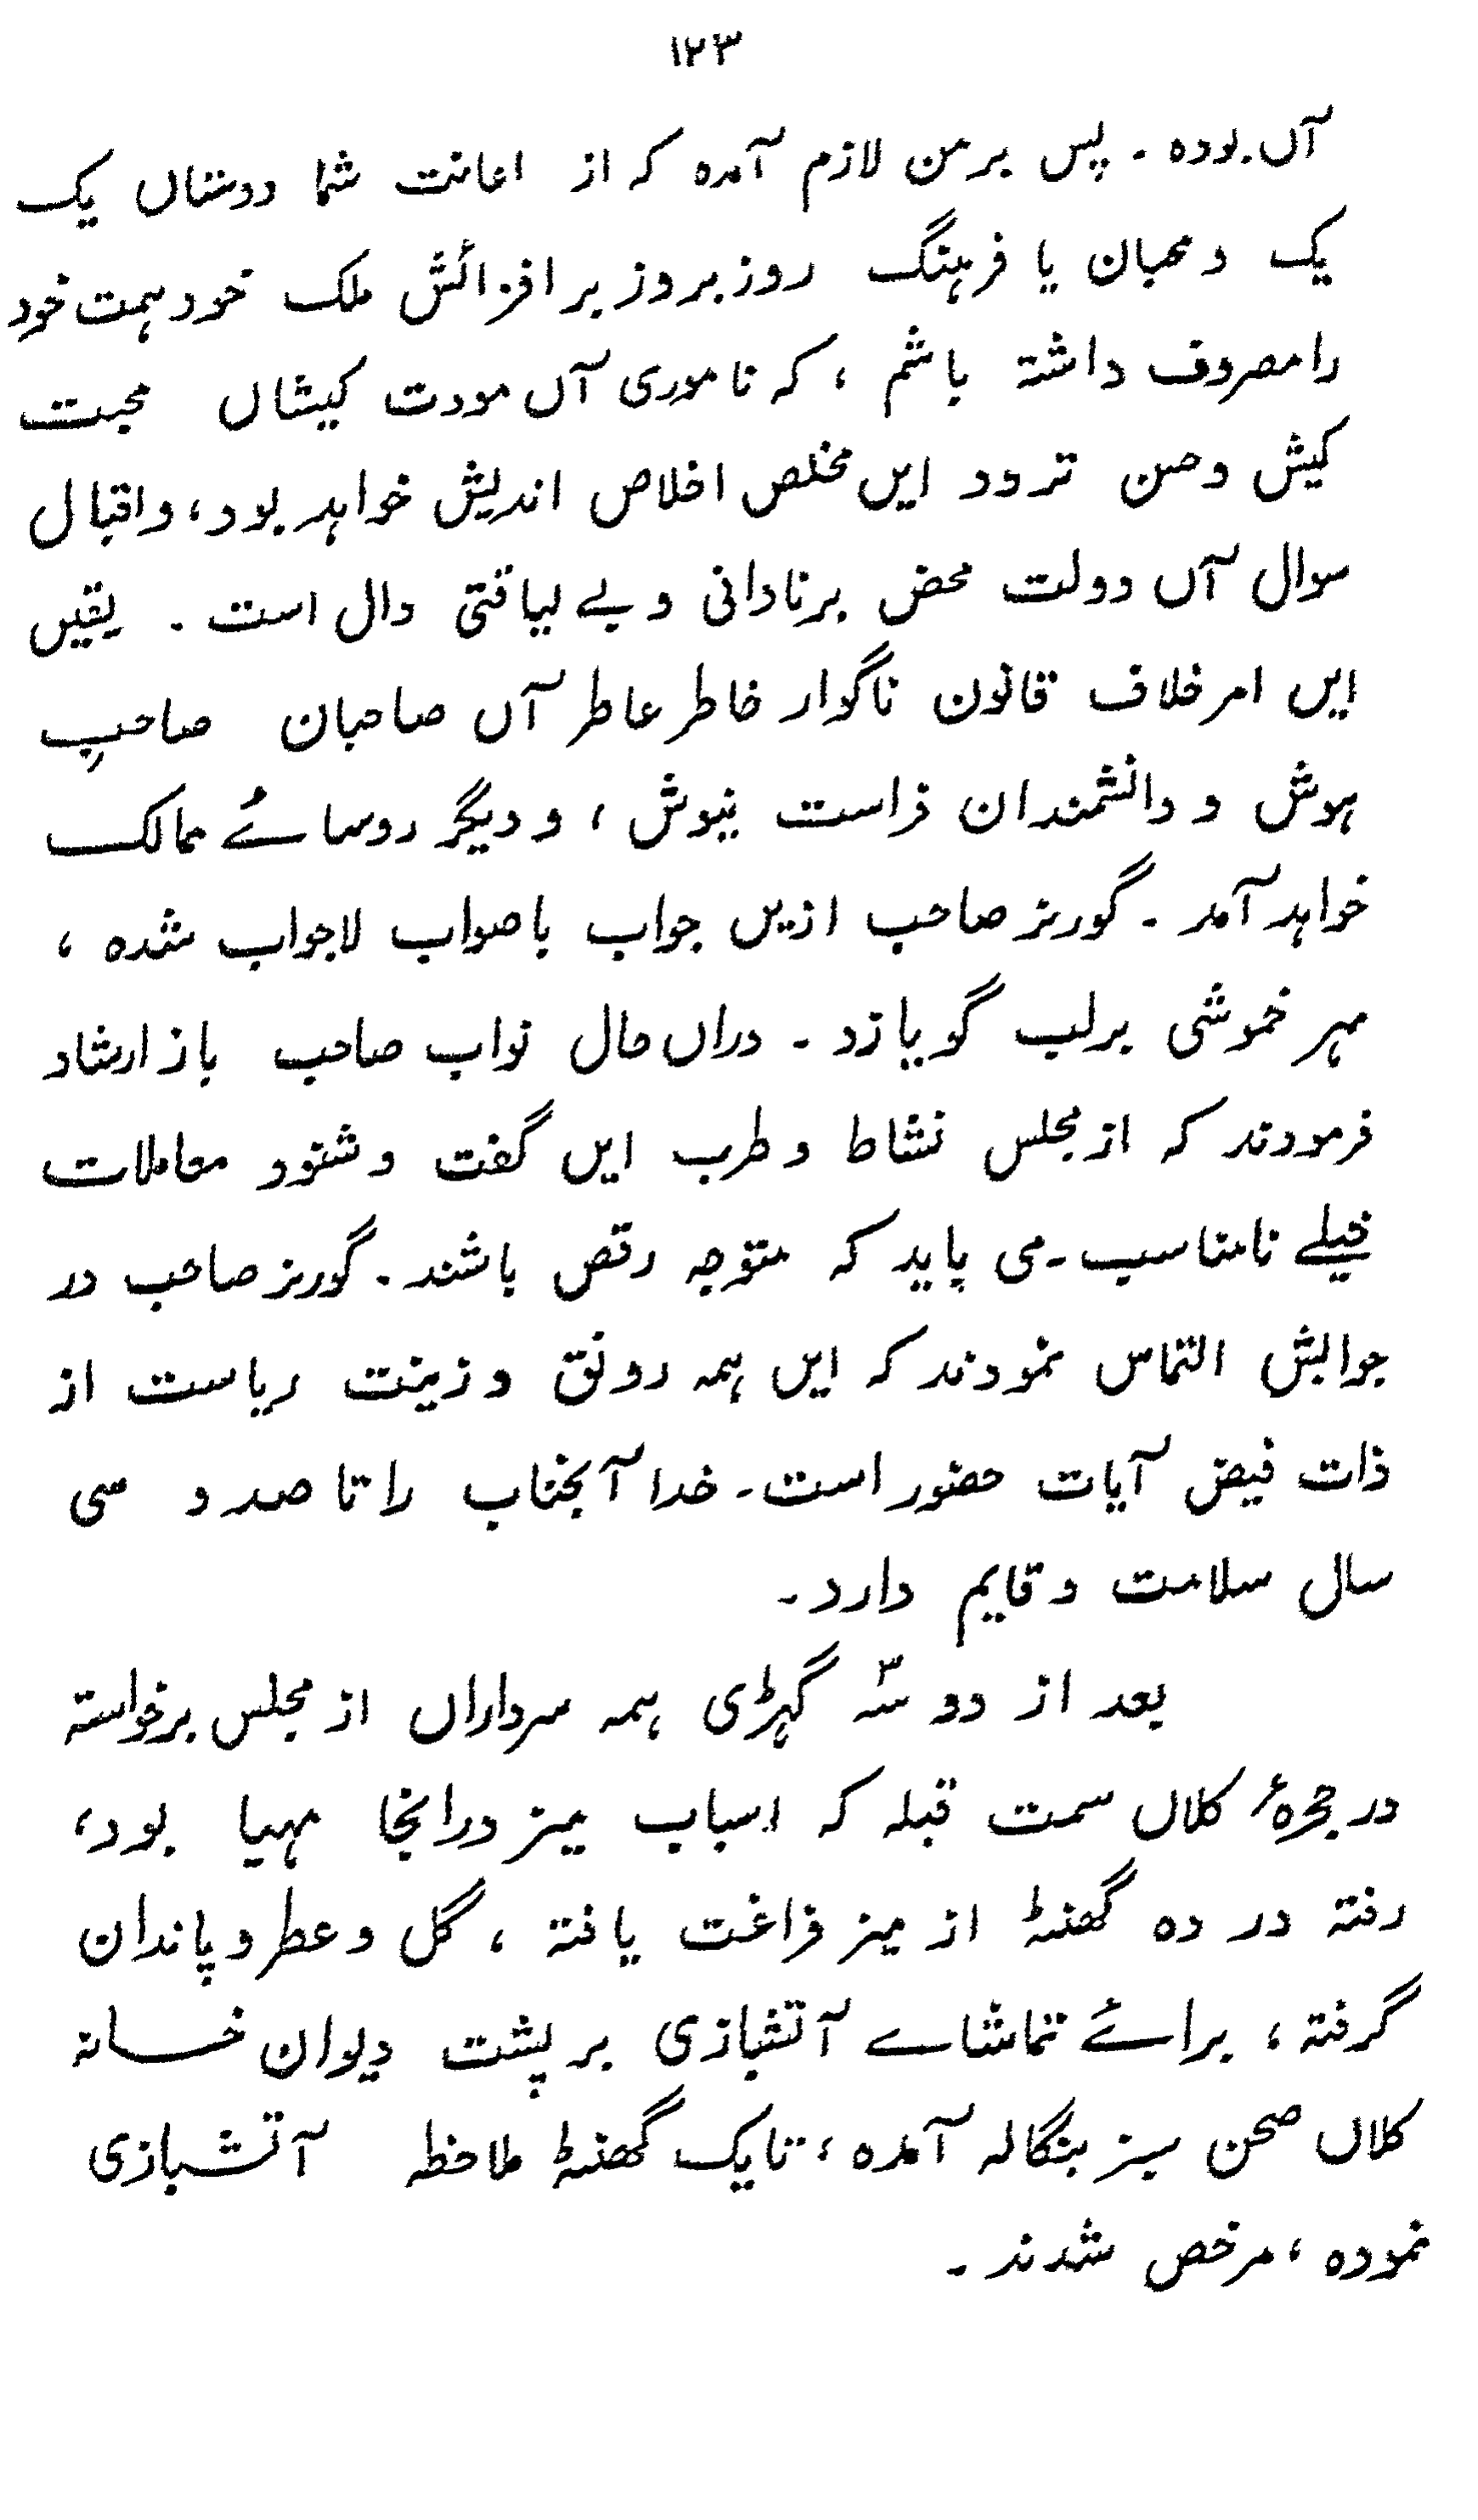 ۱۲۳
آں بوده ۔ پس بر من لازم آمده که از اعانت شما دوستاں یک
یک و محبان با فرہنگ روز بروز بر افزائش ملک خود ہمت خود
را مصروف داشته باشم ، که ناموری آں مودت کیشاں محبت
کیش وحسن تردد ایں مخلص اخلاص اندیش خواہد بود، و اقبال
سوال آں دولت محض بر نادانی و بے لیاقتی دال است ۔ یقیں
ایں امر خلاف قانون ناگوار خاطر عاطر آں صاحبان صاحبِ
ہوش و دانشمندان فراست نیوش ، و دیگر روسائے ممالک
خواہد آمد ۔ گورنر صاحب ازیں جواب باصواب لاجواب شده ،
مہر خموشی بر لب گویا زد ۔ دراں حال نواب صاحب باز ارشاد
فرمودند که از مجلس نشاط و طرب ایں گفت و شنود معاملات
خیلے نامناسب ۔ می باید که متوجه رقص باشند ۔ گورنر صاحب در
جوابش التماس نمودند که ایں ہمه رونق و زینت ریاست از
ذات فیض آیات حضور است ۔ خدا آنجناب را تا صد و سی
سال سلامت و قایم دارد ۔
بعد از دو سہ گہڑی ہمه سرداراں از مجلس برخواسته
در حجرۂ کلاں سمت قبله که اسباب میز درانجا مہیا بود،
رفته در ده گھنٹہ از میز فراغت یافته ، گل و عطر و پاندان
گرفته ، برائے تماشاے آتشبازی بر پشت دیوان خانه
کلاں صحن سبز بنگاله آمده ، تا یک گھنٹہ ملاحظه آتشبازی
نموده ، مرخص شدند ۔